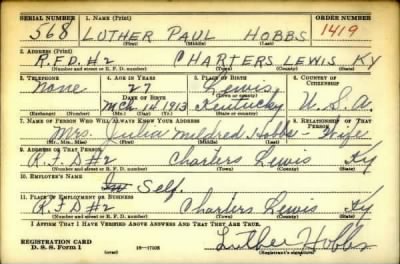 SERIAL NUMBER 1. NAME (Print) ORDER NUMBER
568 LUTHER PAUL HOBBS 1419
(First) (Middle) (Last)
2. ADDRESS (Print)
R.F.D. #2 CHARTERS LEWIS KY
(Number and street or R. F. D. number) (Town) (County) (State)
3. TELEPHONE 4. AGE IN YEARS 5. PLACE OF BIRTH 6. COUNTRY OF CITIZENSHIP
None 27 Lewis
DATE OF BIRTH (Town or county)
Mch 14 1913 Kentucky U.S.A.
(Exchange) (Number) (Mo.) (Day) (Yr.) (State or country)
7. NAME OF PERSON WHO WILL ALWAYS KNOW YOUR ADDRESS 8. RELATIONSHIP OF THAT PERSON
Mrs. Julia Mildred Hobbs - Wife
(Mr., Mrs., Miss) (First) (Middle) (Last)
9. ADDRESS OF THAT PERSON
R.F.D #2 Charters Lewis Ky
(Number and street or R. F. D. number) (Town) (County) (State)
10. EMPLOYER'S NAME
Self.
11. PLACE OF EMPLOYMENT OR BUSINESS
R.F.D #2 Charters Lewis Ky
(Number and street or R. F. D. number) (Town) (County) (State)
I AFFIRM THAT I HAVE VERIFIED ABOVE ANSWERS AND THAT THEY ARE TRUE.
REGISTRATION CARD
D. S. S. Form 1 (over) Luther Hobbs
(Registrant's signature)